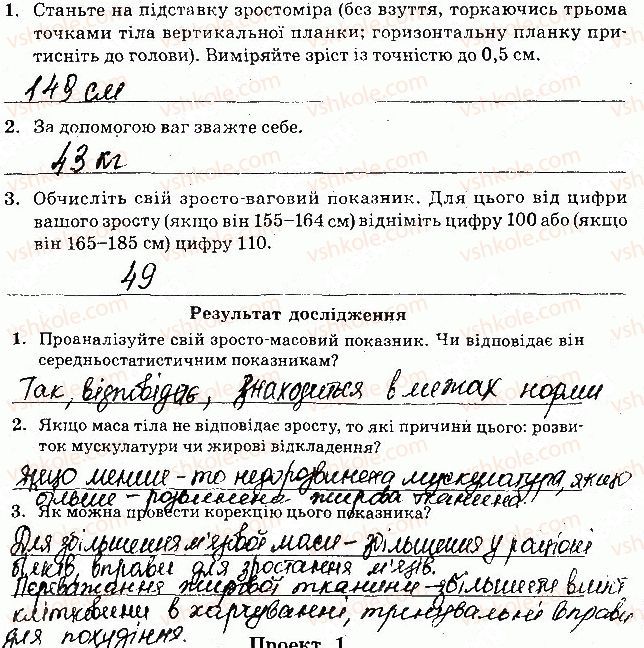 1. Станьте на підставку зростоміра (без взуття, торкаючись трьома
точками тіла вертикальної планки; горизонтальну планку при-
тисніть до голови). Виміряйте зріст із точністю до 0,5 см.
149 см
2. За допомогою ваг зважте себе.
43 кг
3. Обчисліть свій зросто-ваговий показник. Для цього від цифри
вашого зросту (якщо він 155–164 см) відніміть цифру 100 або (якщо
він 165–185 см) цифру 110.
49
Результат дослідження
1. Проаналізуйте свій зросто-масовий показник. Чи відповідає він
середньостатистичним показникам?
Так, відповідає, знаходиться в межах норми
2. Якщо маса тіла не відповідає зросту, то які причини цього: розви-
ток мускулатури чи жирові відкладення?
Якщо менше – то недорозвинена мускулатура, якщо
більше – розвинена жирова тканина.
3. Як можна провести корекцію цього показника?
Для збільшення м'язвої маси – збільшення у раціоні
білків, вправи для зростання м'язів.
Переважання жирової тканини – збільшити вміст
клітковини в харчуванні, тренувальні вправи
для похудіння.
Проект 1
vshkole.com